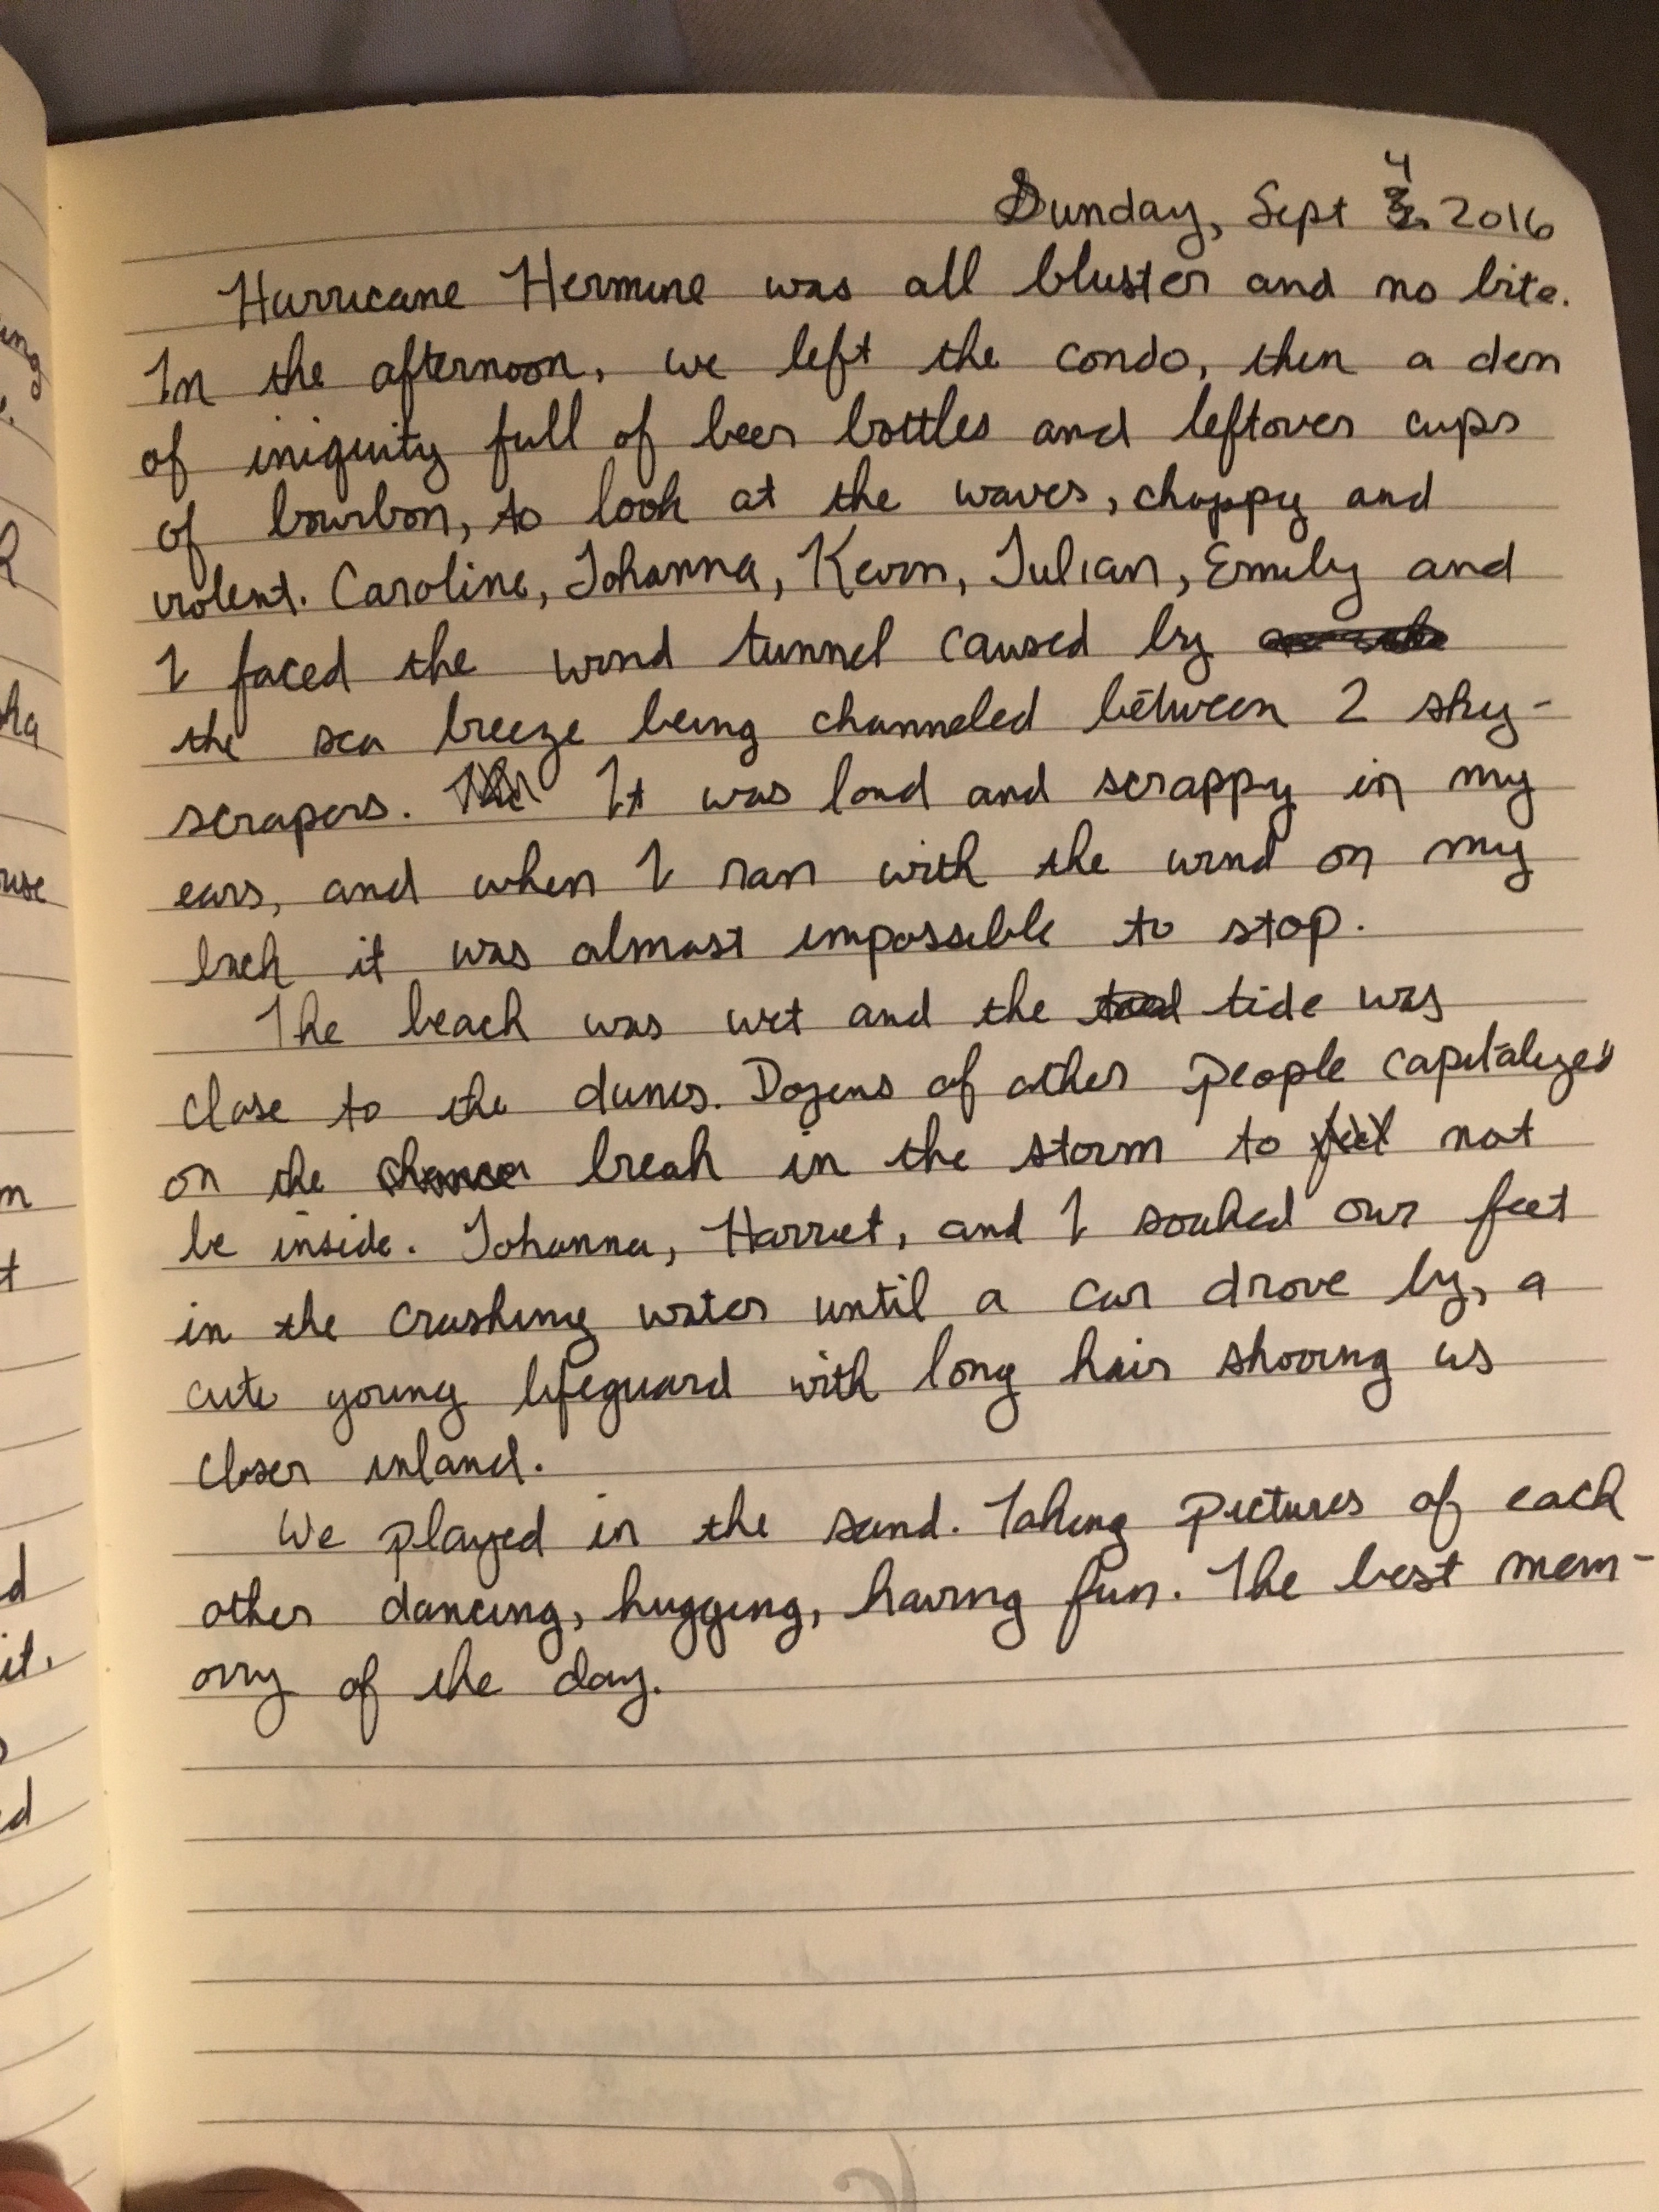 Sunday, Sept 4 2016
Hurricane Hermine was all bluster and no bite.
In the afternoon, we left the condo, then a den
of iniquity full of beer bottles and leftover cups
of bourbon, to look at the waves, choppy and
violent. Caroline, Johanna, Kevin, Julian, Emily and
I faced the wind tunnel caused by
the sea breeze being channeled between 2 sky-
scrapers. It was loud and scrappy in my
ears, and when I ran with the wind on my
back it was almost impossible to stop.
The beach was wet and the tide was
close to the dunes. Dozens of other people capitalized
on the break in the storm to not
be inside. Johanna, Harriet, and I soaked our feet
in the crashing water until a car drove by, a
cute young lifeguard with long hair shooing us
closer inland.
We played in the sand. Taking pictures of each
other dancing, hugging, having fun. The best mem-
orry of the day.